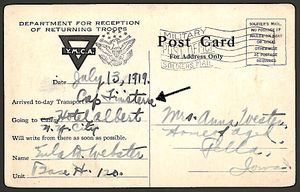 DEPARTMENT FOR RECEPTION
OF RETURNING TROOPS
Y.M.C.A.
Post Card
For Address Only
MILITARY
SOLDIERS MAIL
SOLDIER'S MAIL.
NO POSTAGE IF
Date July 13, 1919.
Arrived to-day Transport Cap Finisterre
Going to Hotel Albert
N. Y. City
Will write from there as soon as possible.
Name
Webster
Unit Base H. 120.
Mrs. Anna Webster
Pella
Iowa